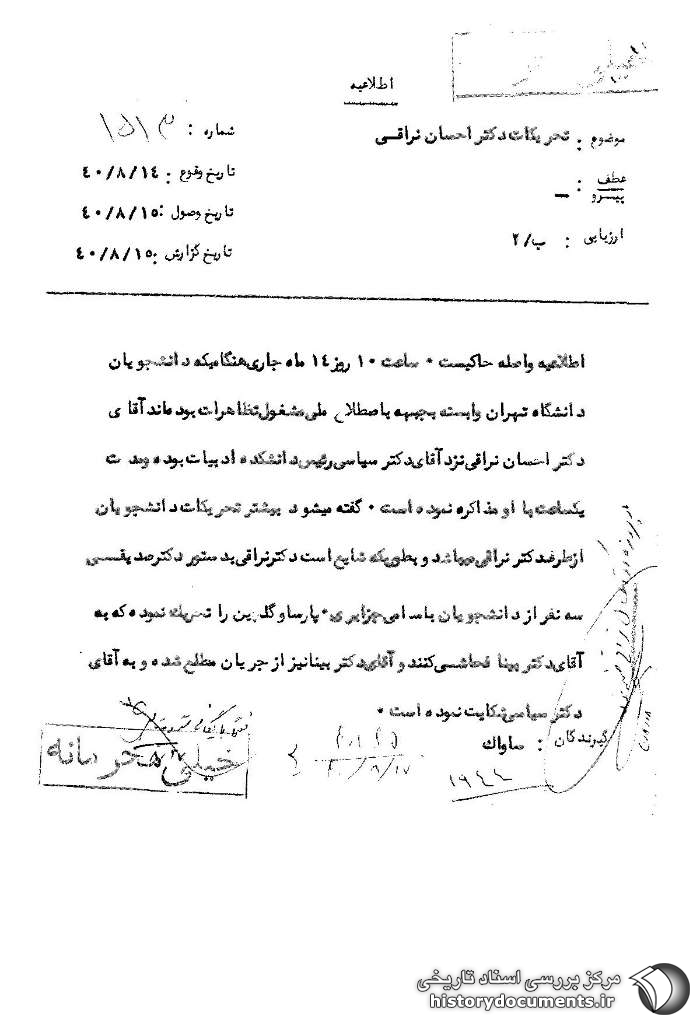 اطلاعیه
موضوع : تحریکات دکتر احسان نراقی
شماره : ۱۵۱۳
عطف
پیرو : —
تاریخ وقوع : ۴۰/۸/۱۴
تاریخ وصول : ۴۰/۸/۱۵
ارزیابی : ب/۲
تاریخ گزارش : ۴۰/۸/۱۵
اطلاعیه واصله حاکیست ۰ ساعت ۱۰ روز ۱۴ ماه جاری هنگامیکه دانشجویان
دانشگاه تهران وابسته بجبهه باصطلاح ملی مشغول تظاهرات بوده‌اند آقای
دکتر احسان نراقی نزد آقای دکتر سیاسی رئیس دانشکده ادبیات بوده و مدت
یکساعت با او مذاکره نموده است ۰ گفته میشود بیشتر تحریکات دانشجویان
از طرف دکتر نراقی میباشد و بطوریکه شایع است دکتر نراقی بدستور دکتر صدیقی
سه نفر از دانشجویان باسامی جزایری ۰ پارسا و گلبن را تحریک نموده که به
آقای دکتر بینا فحاشی کنند و آقای دکتر بینا نیز از جریان مطلع شده و به آقای
دکتر سیاسی شکایت نموده است ۰
گیرندگان : ساواک
خیلی محرمانه
۴۰/۸/۱۷
۱۹۴۴
مرکز بررسی اسناد تاریخی
historydocuments.ir